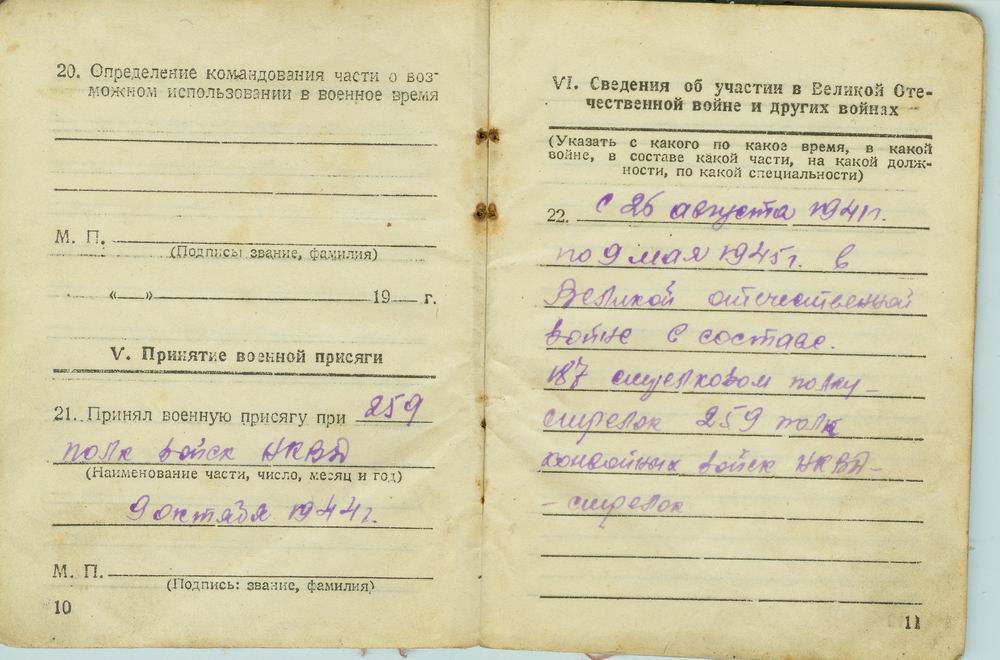 20. Определение командования части о воз-
можном использовании в военное время
М. П.
(Подписы звание, фамилия)
«__» 19__ г.
V. Принятие военной присяги
21. Принял военную присягу при 259
полк войск НКВД
(Наименование части, число, месяц и год)
9 октября 1944г.
М. П.
(Подпись: звание, фамилия)
10
VI. Сведения об участии в Великой Оте-
чественной войне и других войнах
(Указать с какого по какое время, в какой
войне, в составе какой части, на какой долж-
ности, по какой специальности)
22. С 26 августа 1941г.
по 9 мая 1945г. в
Великой отечественной
войне в составе.
187 стрелковом полку -
стрелок 259 полк
конвойных войск НКВД -
- стрелок
11